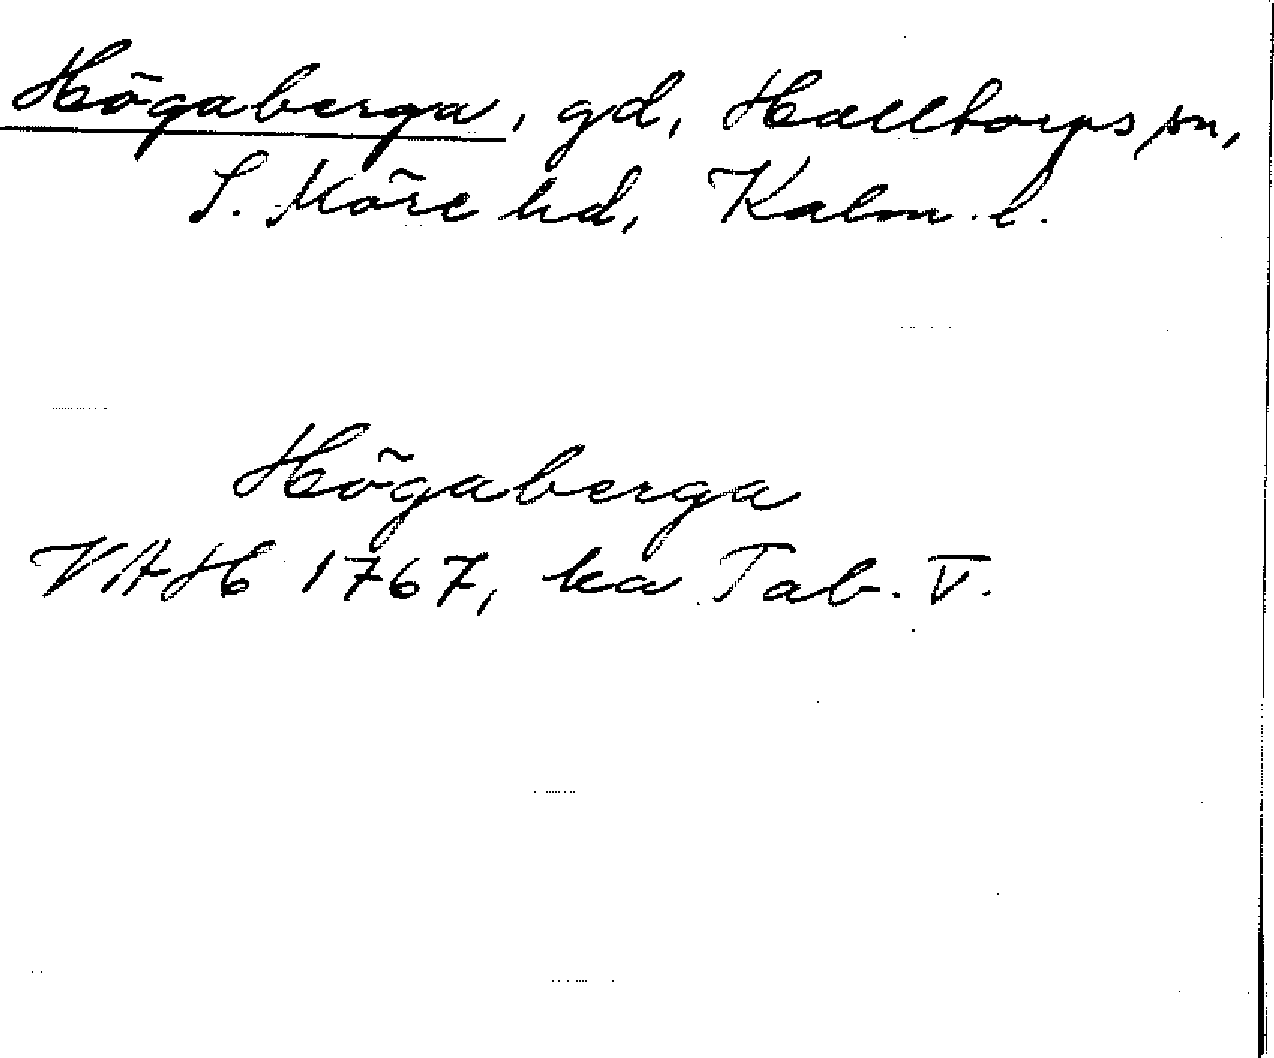 Högaberga, gd, Halltorps sn,
S. Möre hd, Kalm. l.
Högaberga
VAH 1767, ka Tab. V.